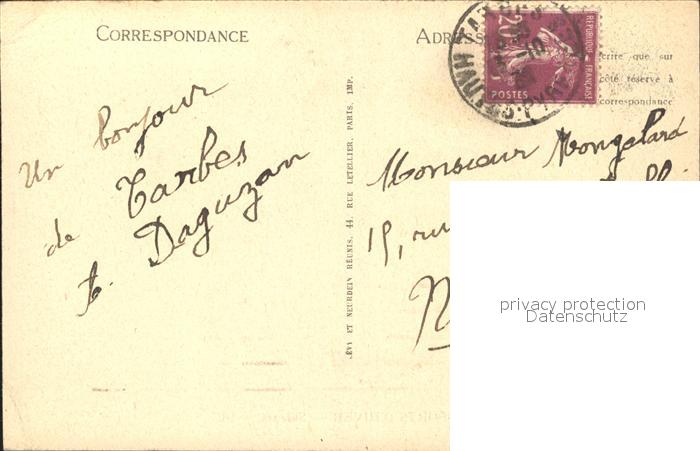 CORRESPONDANCE
Un bonjour
de Tarbes
D. Daguzan
LÉVY ET NEURDEIN RÉUNIS, 44, RUE LETELLIER, PARIS, IMP.
ADRESSE
RÉPUBLIQUE FRANÇAISE
POSTES
écrire que sur
côté réservé à
correspondance
Monsieur Mongelard
15, rue
N
privacy protection
Datenschutz